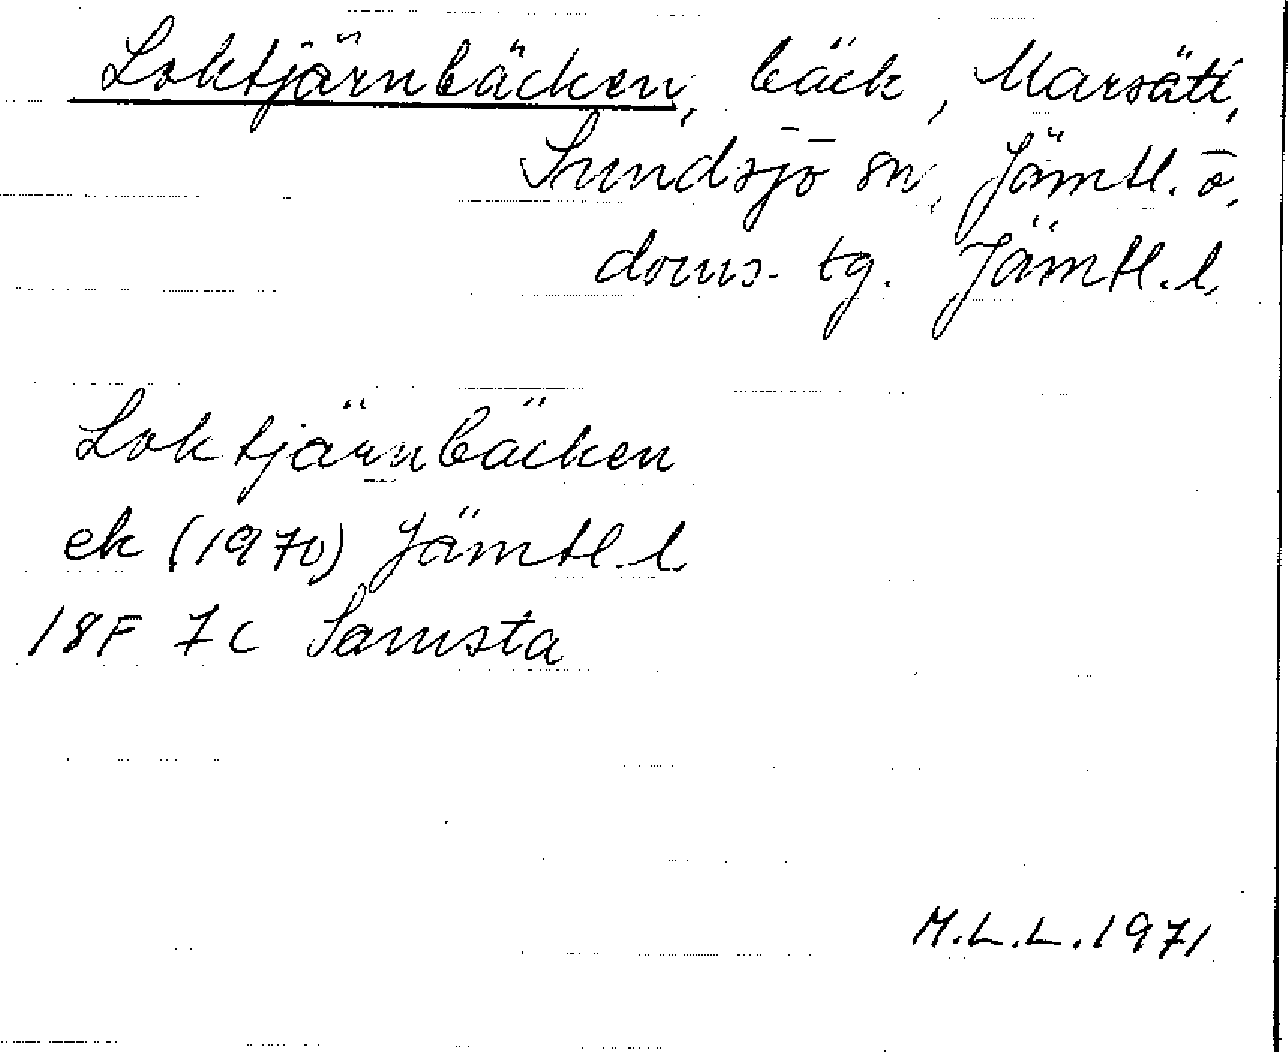 Loktjärnbäcken, bäck, Marsätt,
Sundsjö sn, Jämtl. ö.
doms. tg. Jämtl. l.
Loktjärnbäcken
ek (1970) Jämtl. l.
18F 7c Samsta
M.L.L. 1971